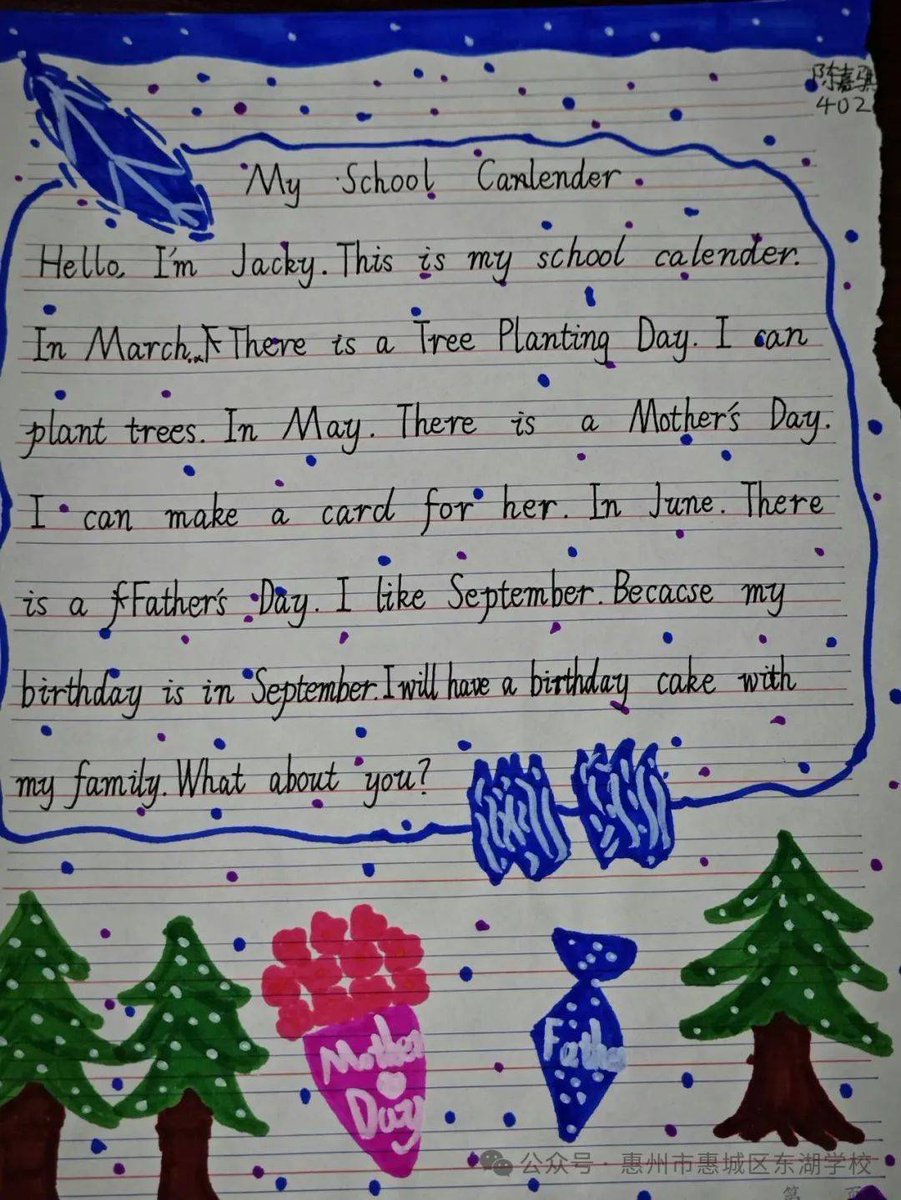 陈嘉
402
My School Canlender
Hello, I'm Jacky. This is my school calender.
In March, There is a Tree Planting Day. I can
plant trees. In May. There is a Mother's Day.
I can make a card for her. In June. There
is a Father's Day. I like September. Becacse my
birthday is in September. I will have a birthday cake with
my family. What about you?
Mother
Day
Father
公众号 · 惠州市惠城区东湖学校